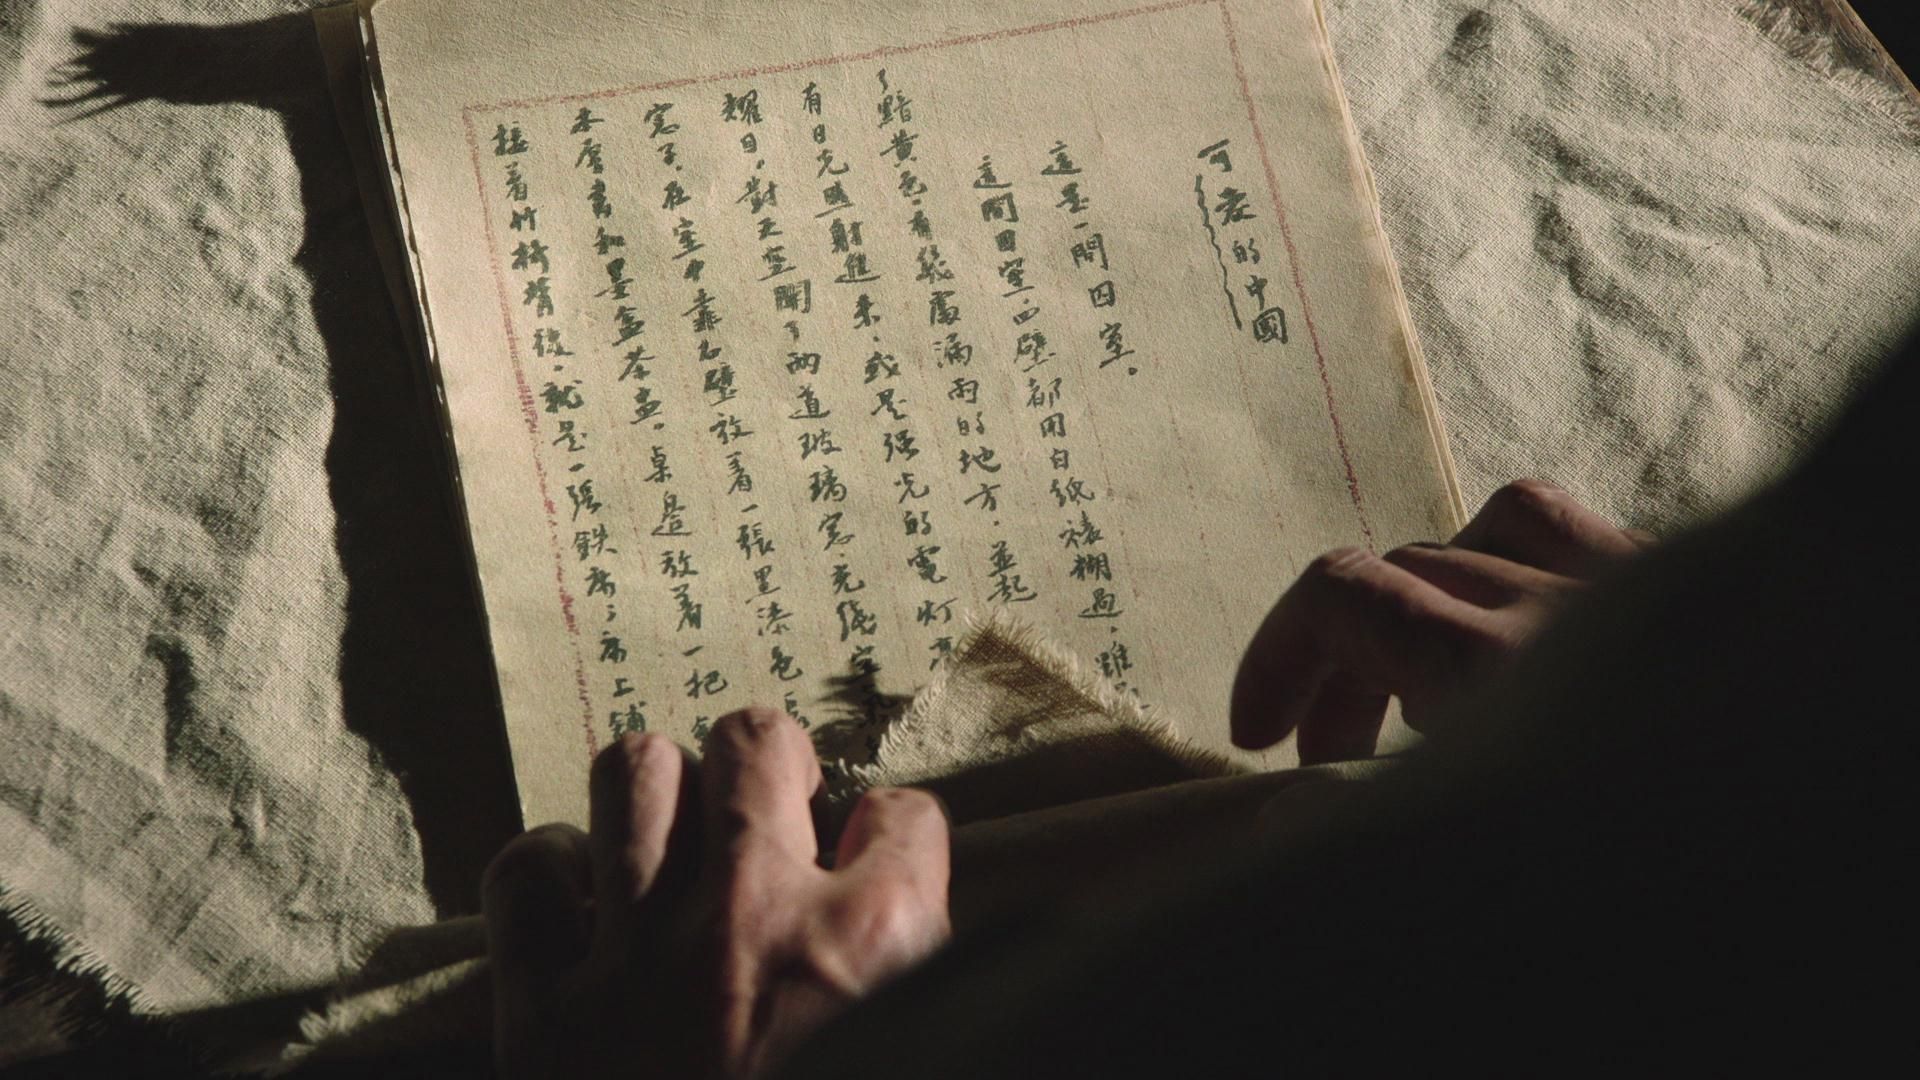 可愛的中國
這是一間囚室。
這間囚室，四壁都用白紙裱糊過，雖
了黯黃色，有幾處漏雨的地方，並起
有日光照射進來，或是强光的電灯亮
耀日，對天空開了兩道玻璃窓，光綫空氣
窓子，在室中靠石壁放着一張黑漆色長
本厚書和墨盒茶盂。桌邊放着一把
接着竹椅背後，就是一張鉄床；床上鋪